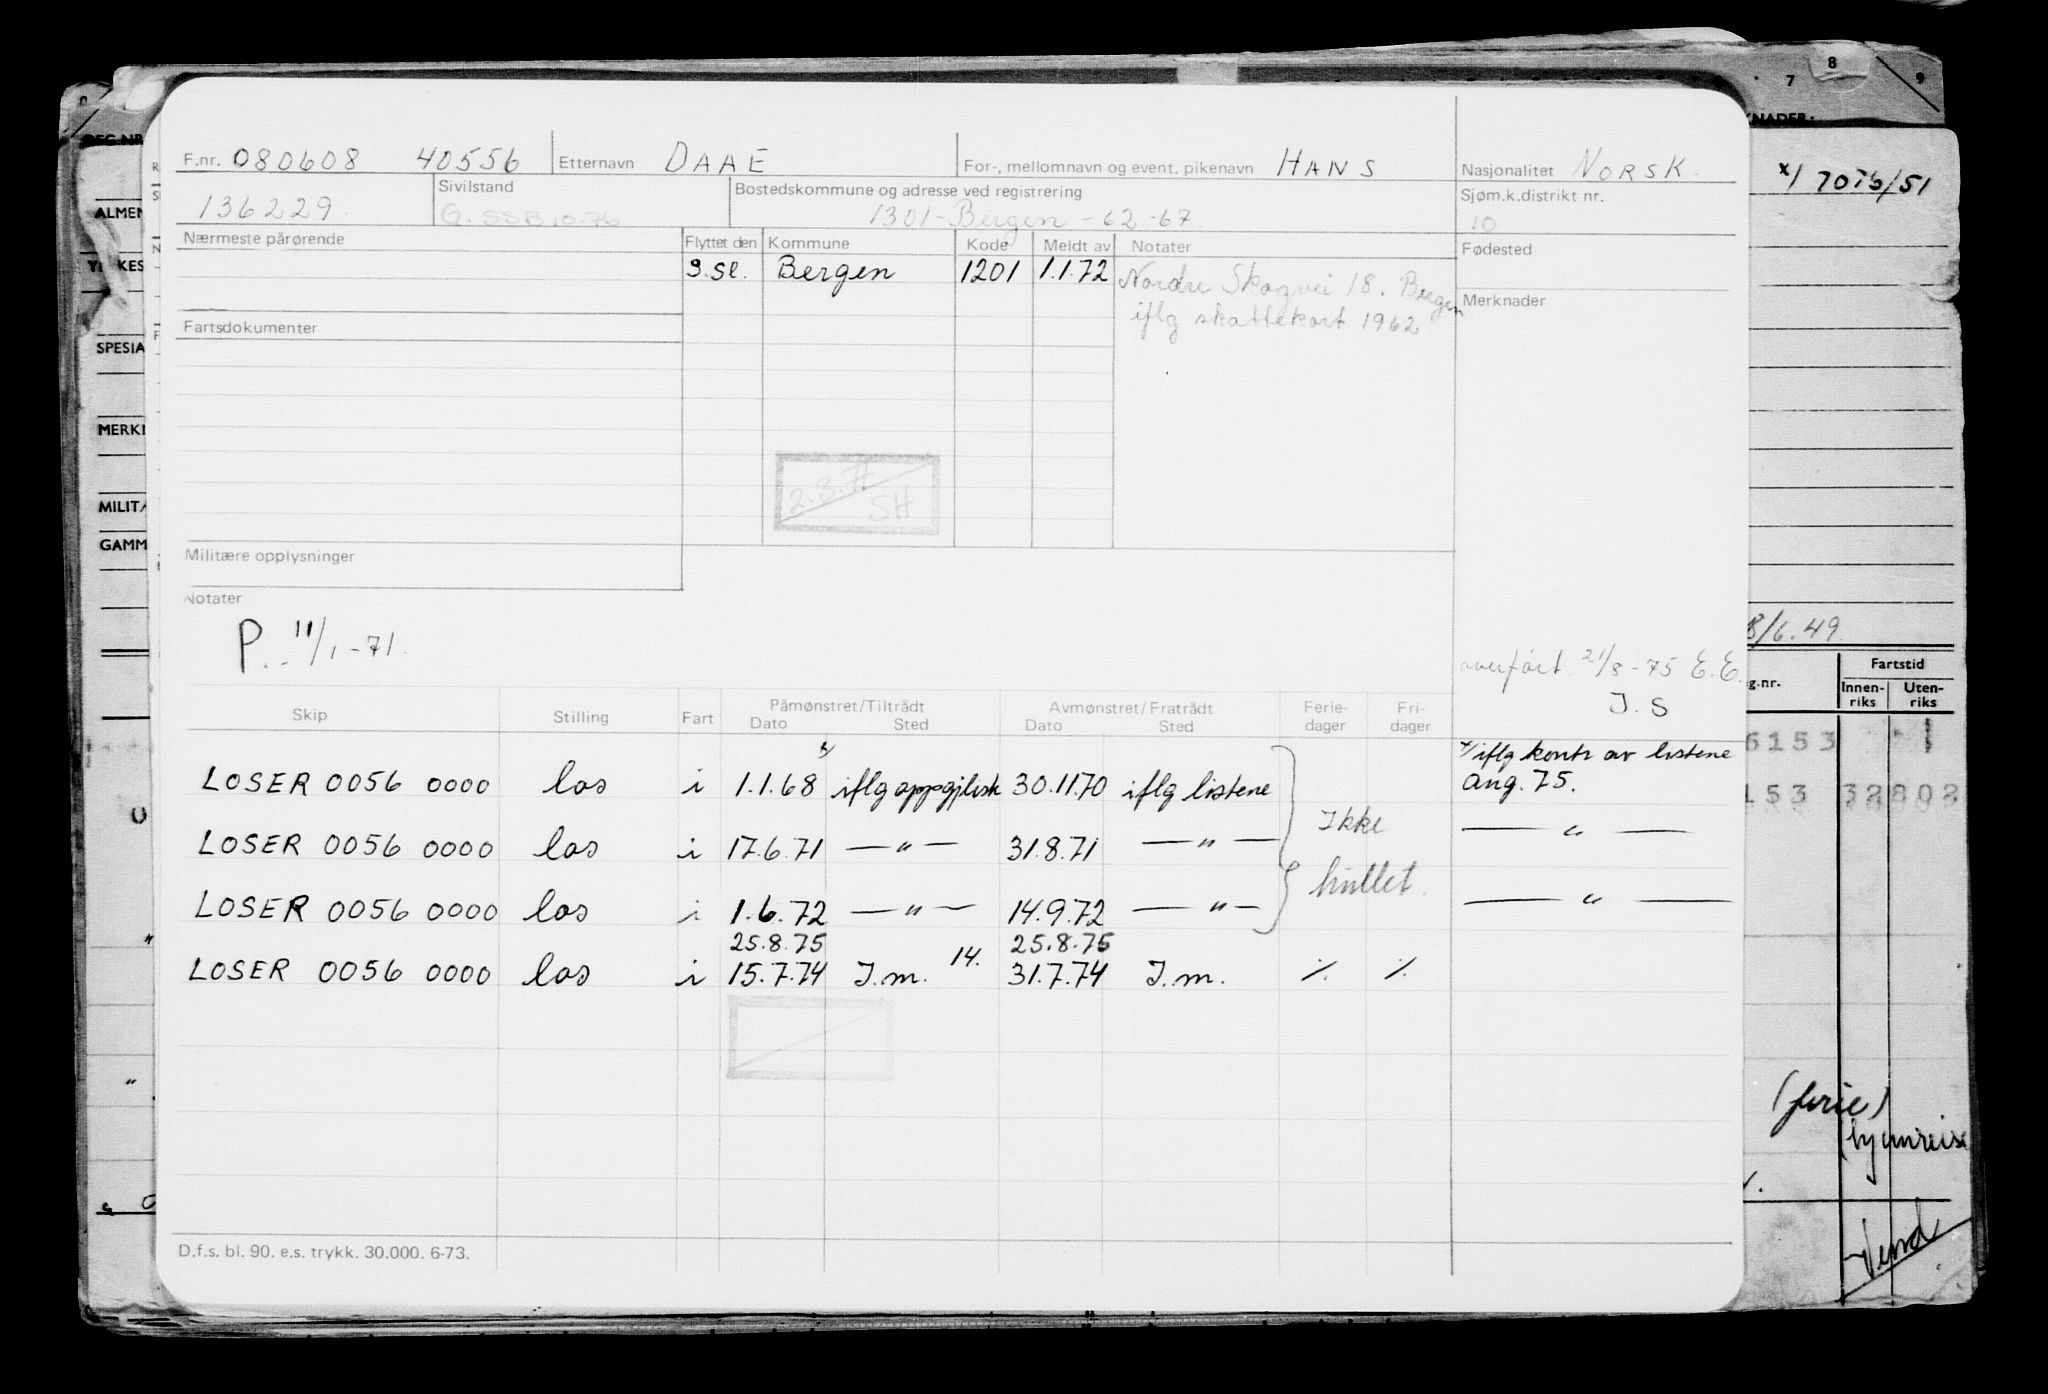 F.nr. 080608 40556 Etternavn DAAE For-, mellomnavn og event, pikenavn HANS Nasjonalitet NORSK.
136229. Sivilstand Bostedskommune og adresse ved registrering Sjøm.k.distrikt nr.
G. SSB 10-76 1301-Bergen -62-67 10
Nærmeste pårørende Flyttet den Kommune Kode Meldt av Notater Fødested
S.sl. Bergen 1201 1.1.72 Nordre Skogvei 18. Bergen
iflg skattekort 1962
Merknader
Fartsdokumenter
2.3.77
SH
Militære opplysninger
Notater
P. 11/1-71.
overført 21/8-75 E.E.
J.S
Skip Stilling Fart Påmønstret/Tiltrådt Avmønstret/Fratrådt Ferie- Fri-
Dato Sted Dato Sted dager dager
x/ iflg kontr av listene
LOSER 0056 0000 los i 1.1.68 x/ iflg oppgjlistr 30.11.70 iflg listene Aug. 75.
Ikke
LOSER 0056 0000 los i 17.6.71 — " — 31.8.71 — " — — " —
hullet.
LOSER 0056 0000 los i 1.6.72 — " — 14.9.72 — " — — " —
25.8.75 25.8.75
LOSER 0056 0000 los i 15.7.74 J.m. 14. 31.7.74 J.m. ./. ./.
D.f.s. bl. 90. e.s. trykk. 30.000. 6-73.
7 8 9
x/ 7075/51
ALMEN
SPESIA
MERKN
MILIT
GAMM
8/6.49
g.nr. Fartstid
Innen- Uten-
riks riks
6153 1
153 32802
(ferie)
hjemreise
Vend